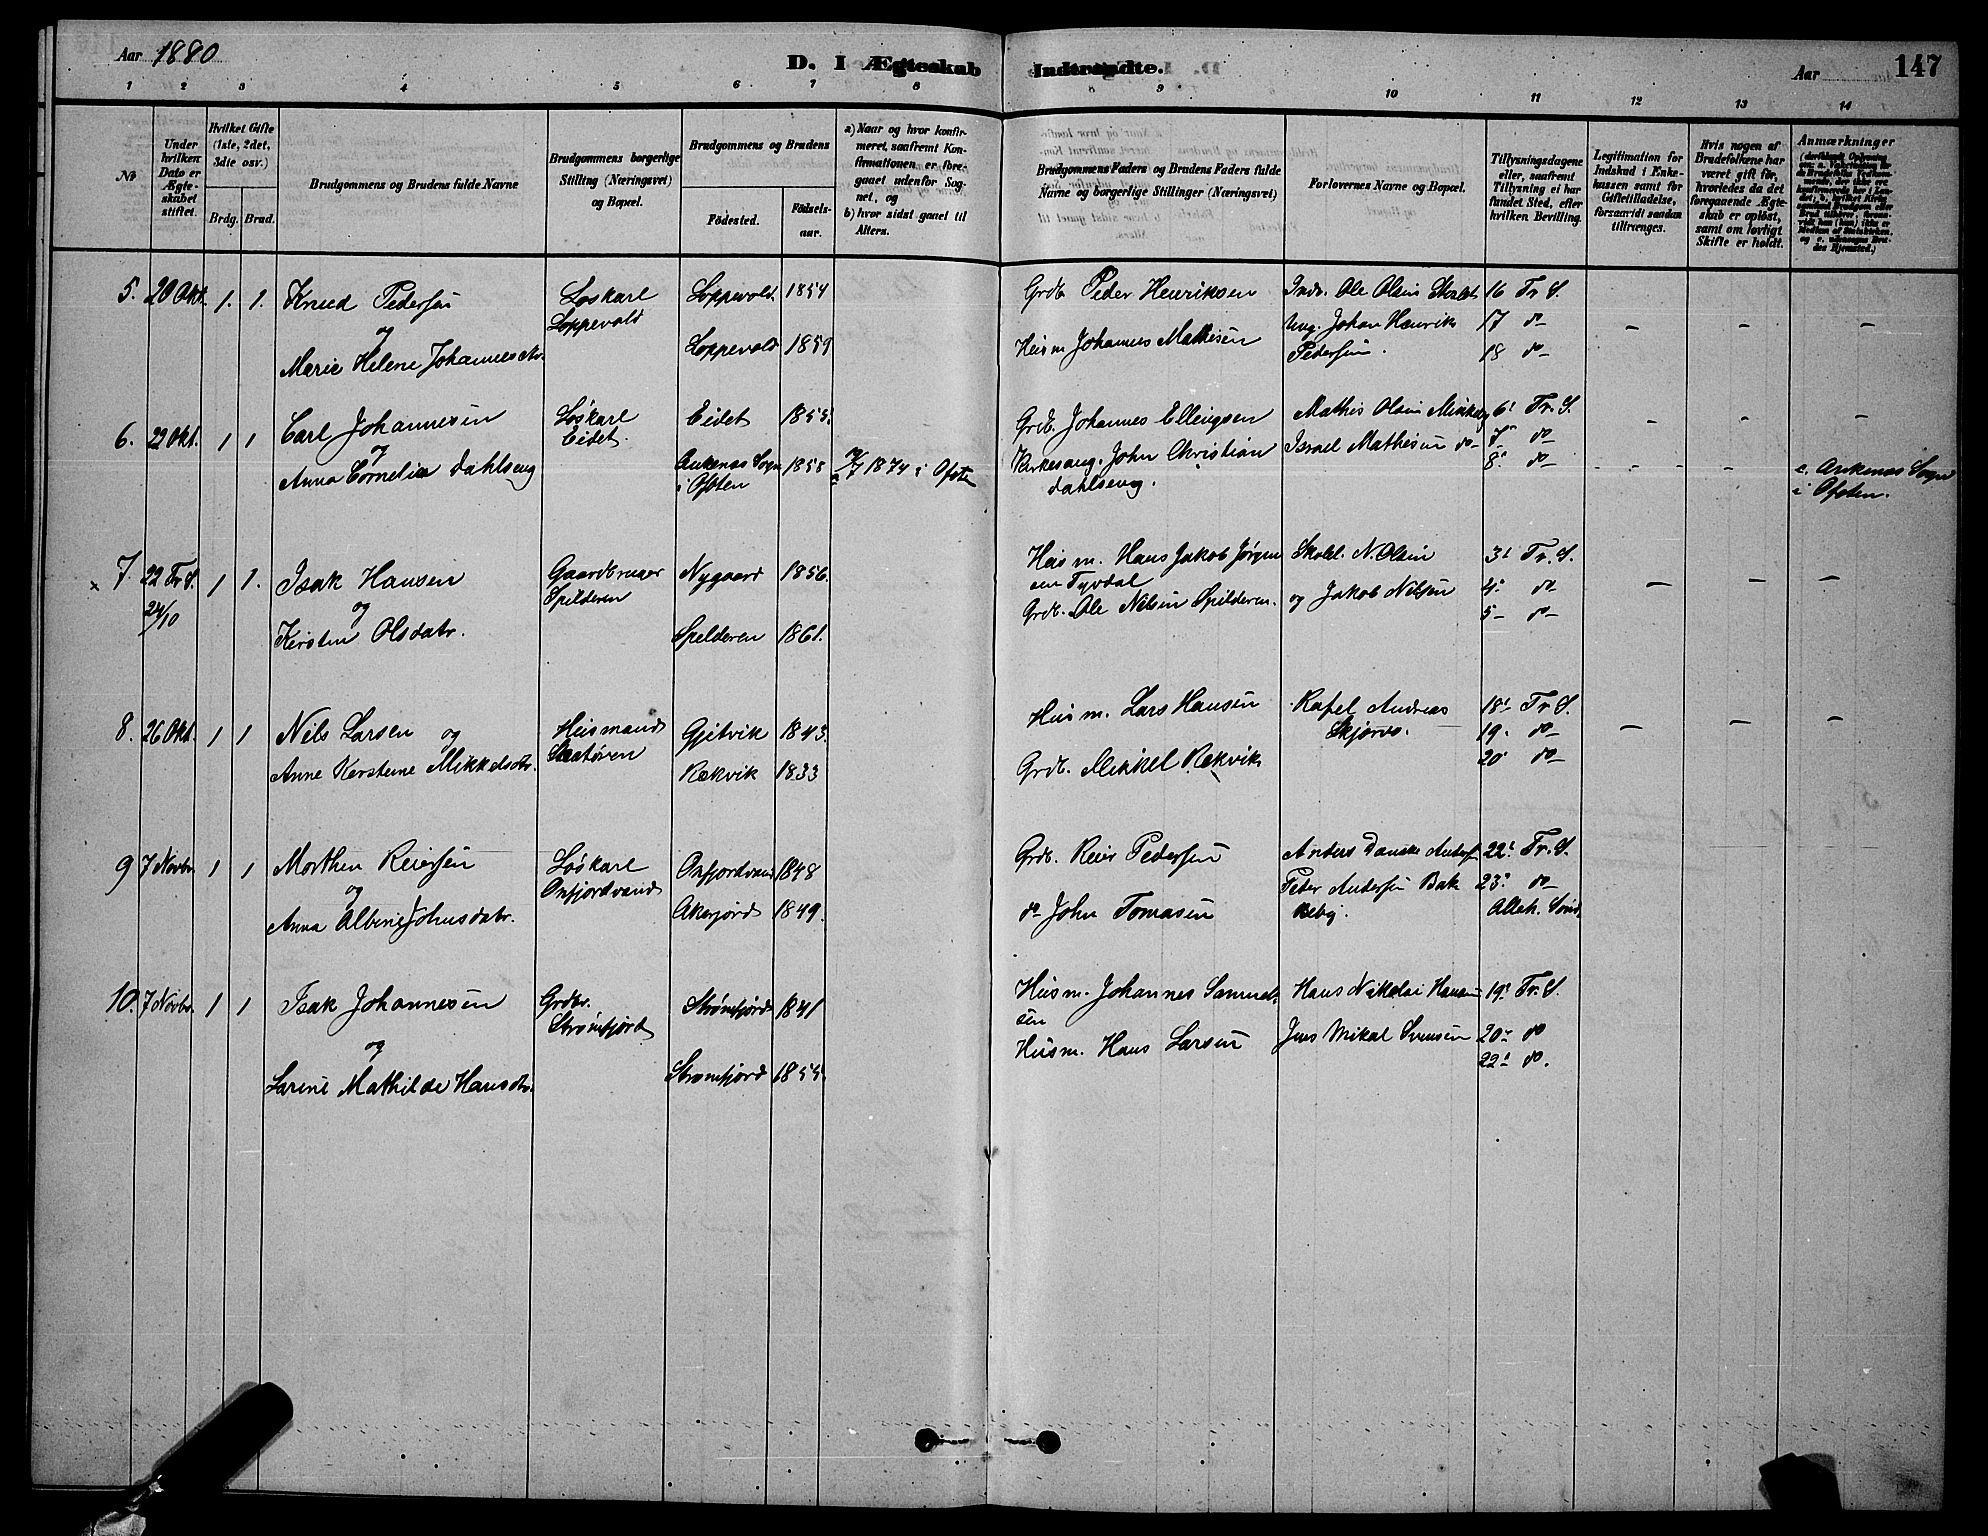 Aar 1880
D. I Ægteskab Indtraadte.
Aar
147
1 2 3 4 5 6 7 8 9 10 11 12 13 14
No
Under hvilken Dato er Ægteskabet stiftet.
Hvilket Gifte (1ste, 2det, 3die osv.)
Brdg. Brud.
Brudgommens og Brudens fulde Navne
Brudgommens borgerlige Stilling (Næringsvei) og Bopæl.
Brudgommens og Brudens
Fødested.
Fødselsaar.
a) Naar og hvor konfirmeret, saafremt Konfirmationen er foregaaet udenfor Sognet, og
b) hvor sidst gaaet til Alters.
Brudgommens Faders og Brudens Faders fulde Navne og borgerlige Stillinger (Næringsvei)
Forlovernes Navne og Bopæl.
Tillysningsdagene eller, saafremt Tillysning ei har fundet Sted, efter hvilken Bevilling.
Legitimation for Indskud i Enkekassen samt for Giftetilladelse, forsaavidt saadan tiltrænges.
Hvis nogen af Brudefolkene har været gift før, hvorledes da det foregaaende Ægteskab er opløst, samt om lovligt Skifte er holdt.
Anmærkninger
5. 20 Okt. 1. 1. Knud Pedersen Løskarl Loppevold 1854 Grdb. Peder Henriksen Inds. Ole Olsen 16 Tr. S.
og Loppevold Ung. Johan Henrik 17 do - - -
Marie Helene Johannesdtr. Loppevold 1859 Husm. Johannes Mathisen Pedersen. 18 do
6. 22 Okt. 1 1 Carl Johannesen Løskarl Eidet 1855 Grdb. Johannes Ellingsen Mathis Olsen 6 Tr. S. - - -
og Eidet. Israel Mathesen do 7 do
Anna Cornelia Dahlseng Ankenes Sogn i Ofoten 1858 1874 i Ofoten Kirkesang. John Christian Dahlseng. 8 do - - - c. Ankenes Sogn i Ofoten.
x 7. 22 Tr. S. 24/10 1 1. Isak Hansen Gaardbruger Nygaard 1856. Husm. Hans Jakob Jørgensen Tyvdal Skold. N. Olsen 3 Tr. S.
og Spilderen og Jakob Nilsen 4 do - - -
Kersten Olsdatr. Spelderen 1861. Grdb. Ole Nilsen Spilderen. 5 do
8. 26 Okt. 1 1 Nils Larsen og Husmand Gjetvik 1843. Husm. Lars Hansen Rafel Andreas 18 Tr. S.
Skjørvo. 19 do - - -
Anne Kerstene Mikkelsdtr. Rekvik 1833 Grdb. Mikkel Rekvik 20 do
9 7 Novbr 1 1 Morthen Reiersen Løskarl Onfjordvand 1848 Grdb. Reier Pedersen Anders Danske 22 Tr. S.
og Onfjordvand Peter Andersen 23 do
Anna Albine Johnsdatr. 1849. do John Tomasen
10. 7 Novbr. 1 1 Isak Johannesen Grdbr. Strømfjord 1841 Husm. Johannes Samuelsen Hans Nikolai Hansen 19 Tr. S.
og Strømfjord Jens Mikal Svensen 20 do
Larine Mathilde Hansdtr. Strømfjord 1855 Husm. Hans Larsen 22 do.